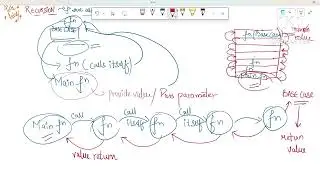 RECURSION
fn
fn (calls itself)
Main fn
provide value / Pass parameter
fn (Base case)
fn
fn
Main fn
call
fn
call
itself
fn
call
itself
fn
fn
value return
BASE CASE
return
value